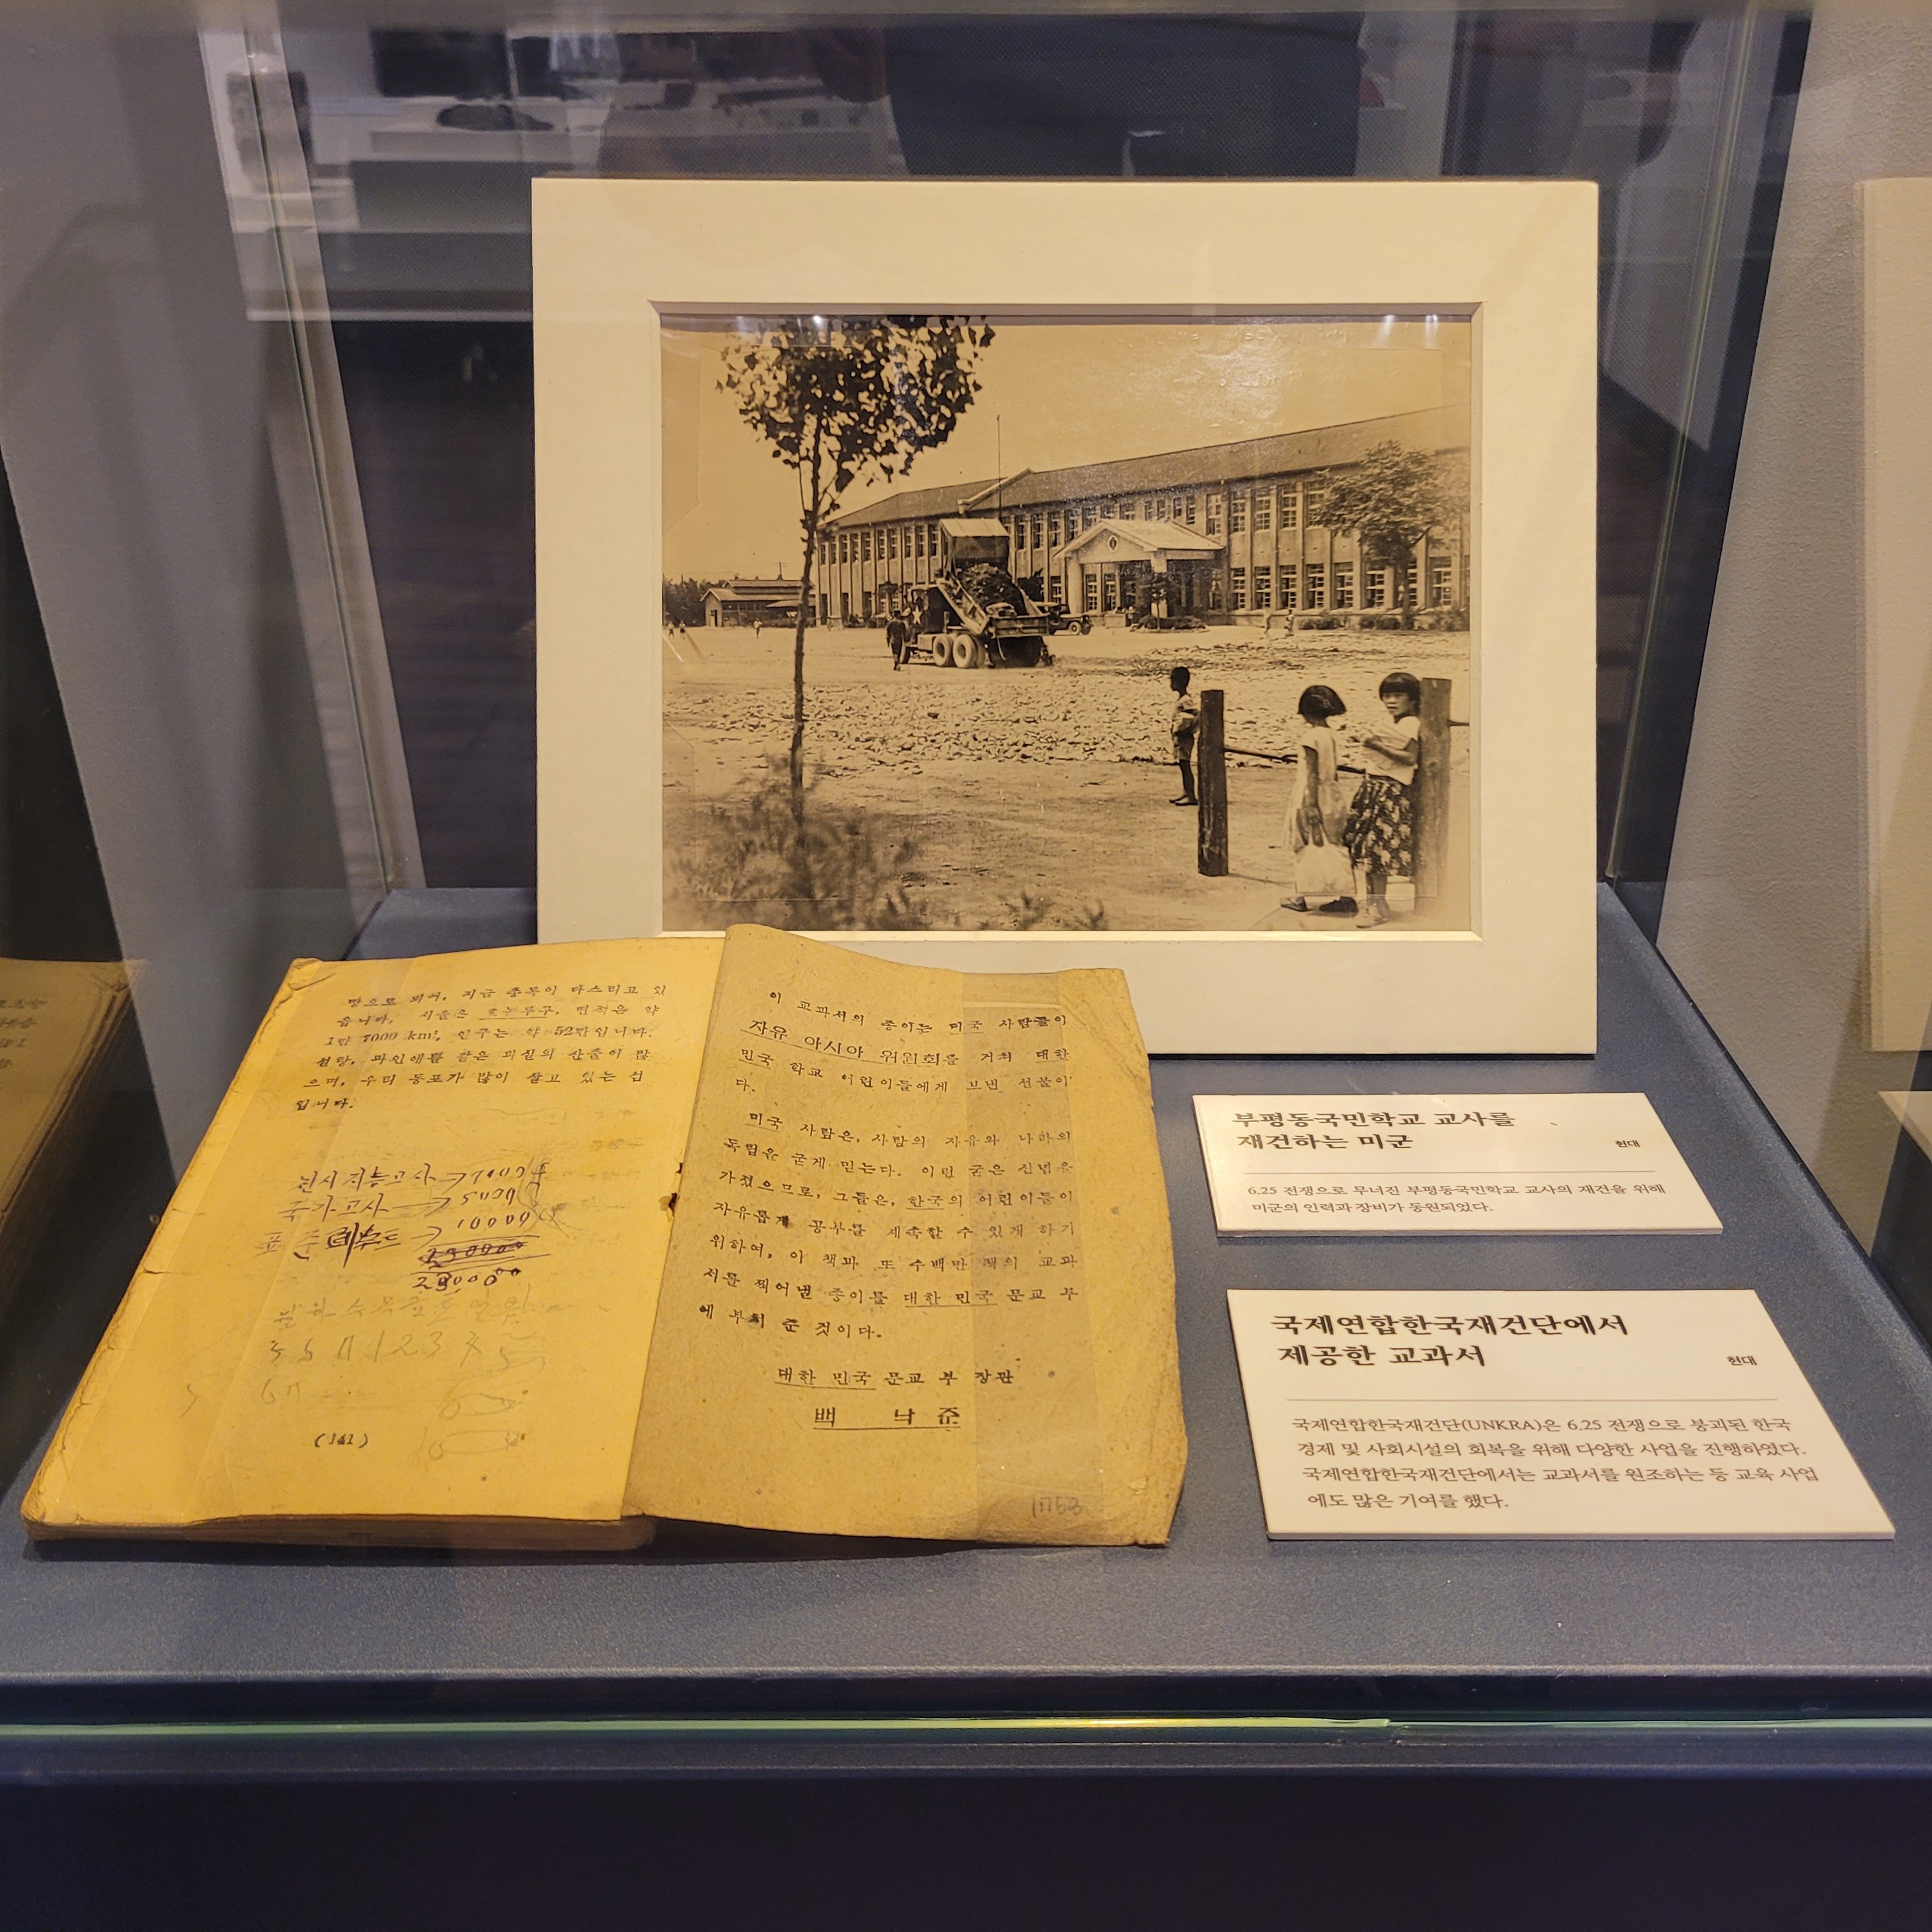 땅으로 되어, 지금 총독이 다스리고 있
습니다. 서울은 호놀룰루, 면적은 약
1만 7000 km², 인구는 약 52만입니다.
설탕, 파인애플 같은 과실의 산출이 많
으며, 우리 동포가 많이 살고 있는 섬
입니다.
전시지능고사 → 9000
국가고사 → 5000
표준 테부트 → 10000
29000
월 화 수 목 금 토 일
(141)
이 교과서의 종이는 미국 사람들이
자유 아시아 위원회를 거쳐 대한
민국 학교 어린이들에게 보낸 선물이
다.
미국 사람은, 사람의 자유와 나라의
독립을 굳게 믿는다. 이런 굳은 신념을
가졌으므로, 그들은, 한국의 어린이들이
자유롭게 공부를 계속할 수 있게 하기
위하여, 이 책과 또 수백만 책의 교과
서를 찍어낼 종이를 대한 민국 문교 부
에 부쳐 준 것이다.
대한 민국 문교 부 장관
백 낙 준
부평동국민학교 교사를
재건하는 미군
현대
6.25 전쟁으로 무너진 부평동국민학교 교사의 재건을 위해
미군의 인력과 장비가 동원되었다.
국제연합한국재건단에서
제공한 교과서
현대
국제연합한국재건단(UNKRA)은 6.25 전쟁으로 붕괴된 한국
경제 및 사회시설의 회복을 위해 다양한 사업을 진행하였다.
국제연합한국재건단에서는 교과서를 원조하는 등 교육 사업
에도 많은 기여를 했다.